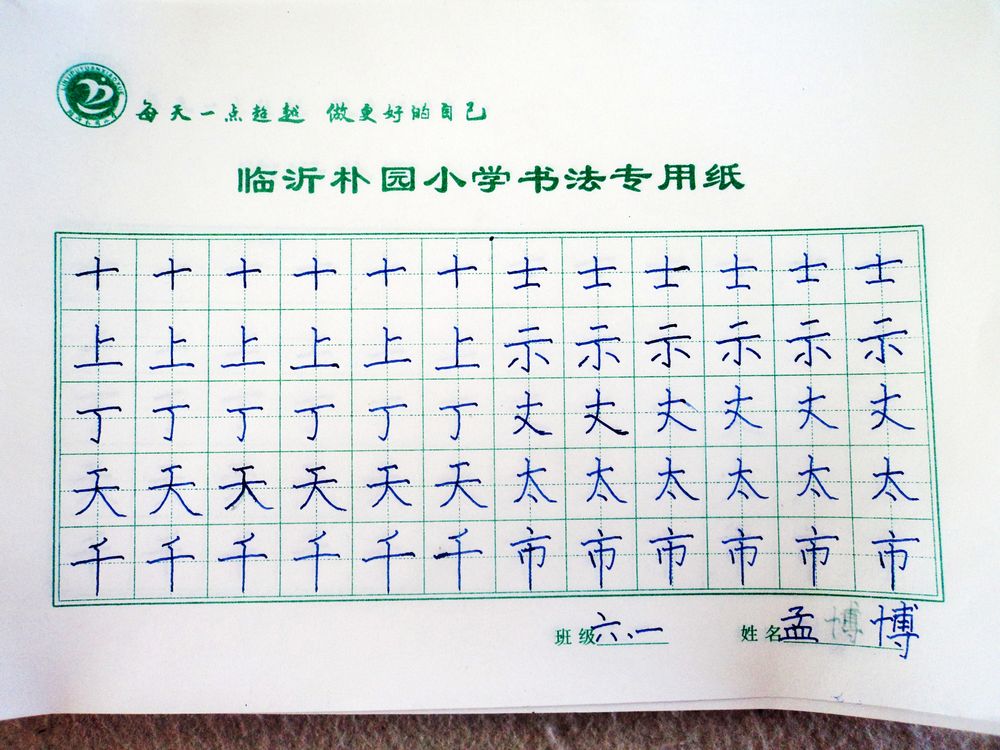 每天一点超越 做更好的自己
临沂朴园小学书法专用纸
十十十十十十士士士士士士
上上上上上上示示示示示示
丁丁丁丁丁丁丈丈丈丈丈丈
天天天天天天太太太太太太
千千千千千千市市市市市市
班级 六、一 姓名 孟博博